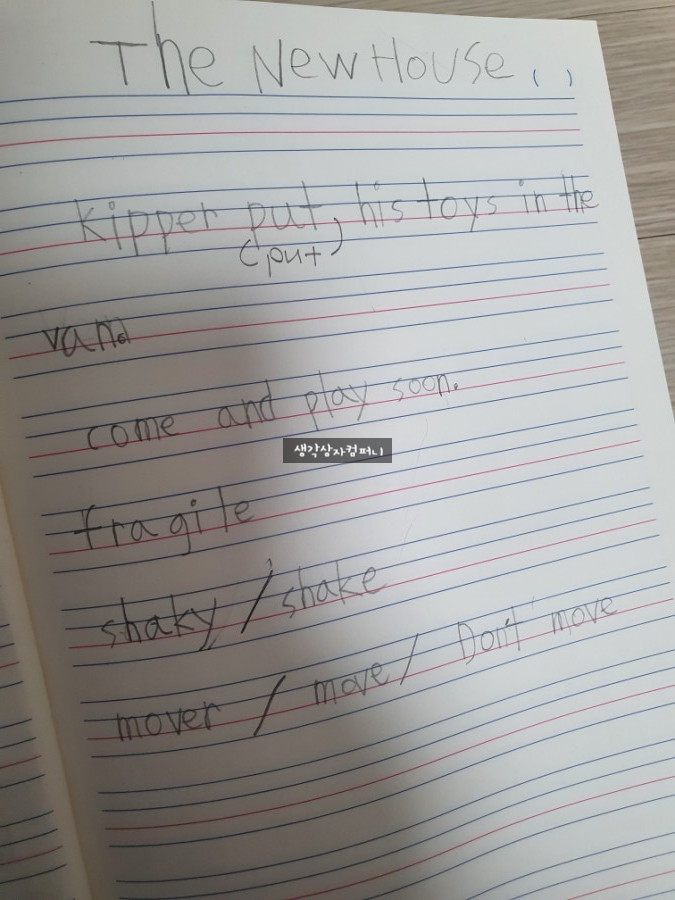 The New House ( )
kipper put, his toys in the
(put)
van
come and play soon.
생각상자컴퍼니
fragile
shaky / shake
mover / move / Don't move